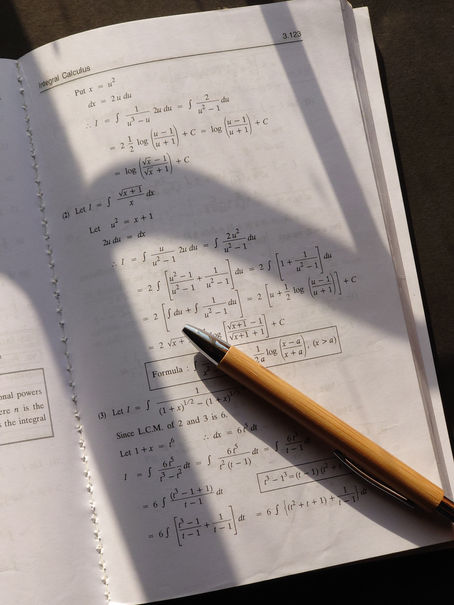 Integral Calculus 3.123
Put x = u²
dx = 2u du
∴ I = ∫ 1/(u³ − u) 2u du = ∫ 2/(u² − 1) du
= 2 1/2 log ((u − 1)/(u + 1)) + C = log ((u − 1)/(u + 1)) + C
= log ((√x − 1)/(√x + 1)) + C
(2) Let I = ∫ √(x + 1)/x dx
Let u² = x + 1
2u du = dx
∴ I = ∫ u/(u² − 1) 2u du = ∫ 2u²/(u² − 1) du
= 2 ∫ [(u² − 1)/(u² − 1) + 1/(u² − 1)] du = 2 ∫ [1 + 1/(u² − 1)] du
= 2 [∫ du + ∫ 1/(u² − 1) du] = 2 [u + 1/2 log ((u − 1)/(u + 1))] + C
= 2 √x + log [(√(x + 1) − 1)/(√(x + 1) + 1)] + C
Formula : ∫ 1/2a log ((x − a)/(x + a)), (x > a)
(3) Let I = ∫ 1/((1 + x)^1/2 − (1 + x)
Since L.C.M. of 2 and 3 is 6,
Let 1 + x = t⁶ ∴ dx = 6t⁵ dt
I = ∫ 6t⁵/(t³ − t²) dt = ∫ 6t⁵/(t²(t − 1)) dt = ∫ 6t³/(t − 1)
= 6 ∫ (t³ − 1 + 1)/(t − 1) dt t³ − 1³ = (t − 1) (t²
= 6 ∫ [(t³ − 1)/(t − 1) + 1/(t − 1)] dt = 6 ∫ {(t² + t + 1) + 1/(t − 1)} dt
onal powers
ere n is the
s the integral